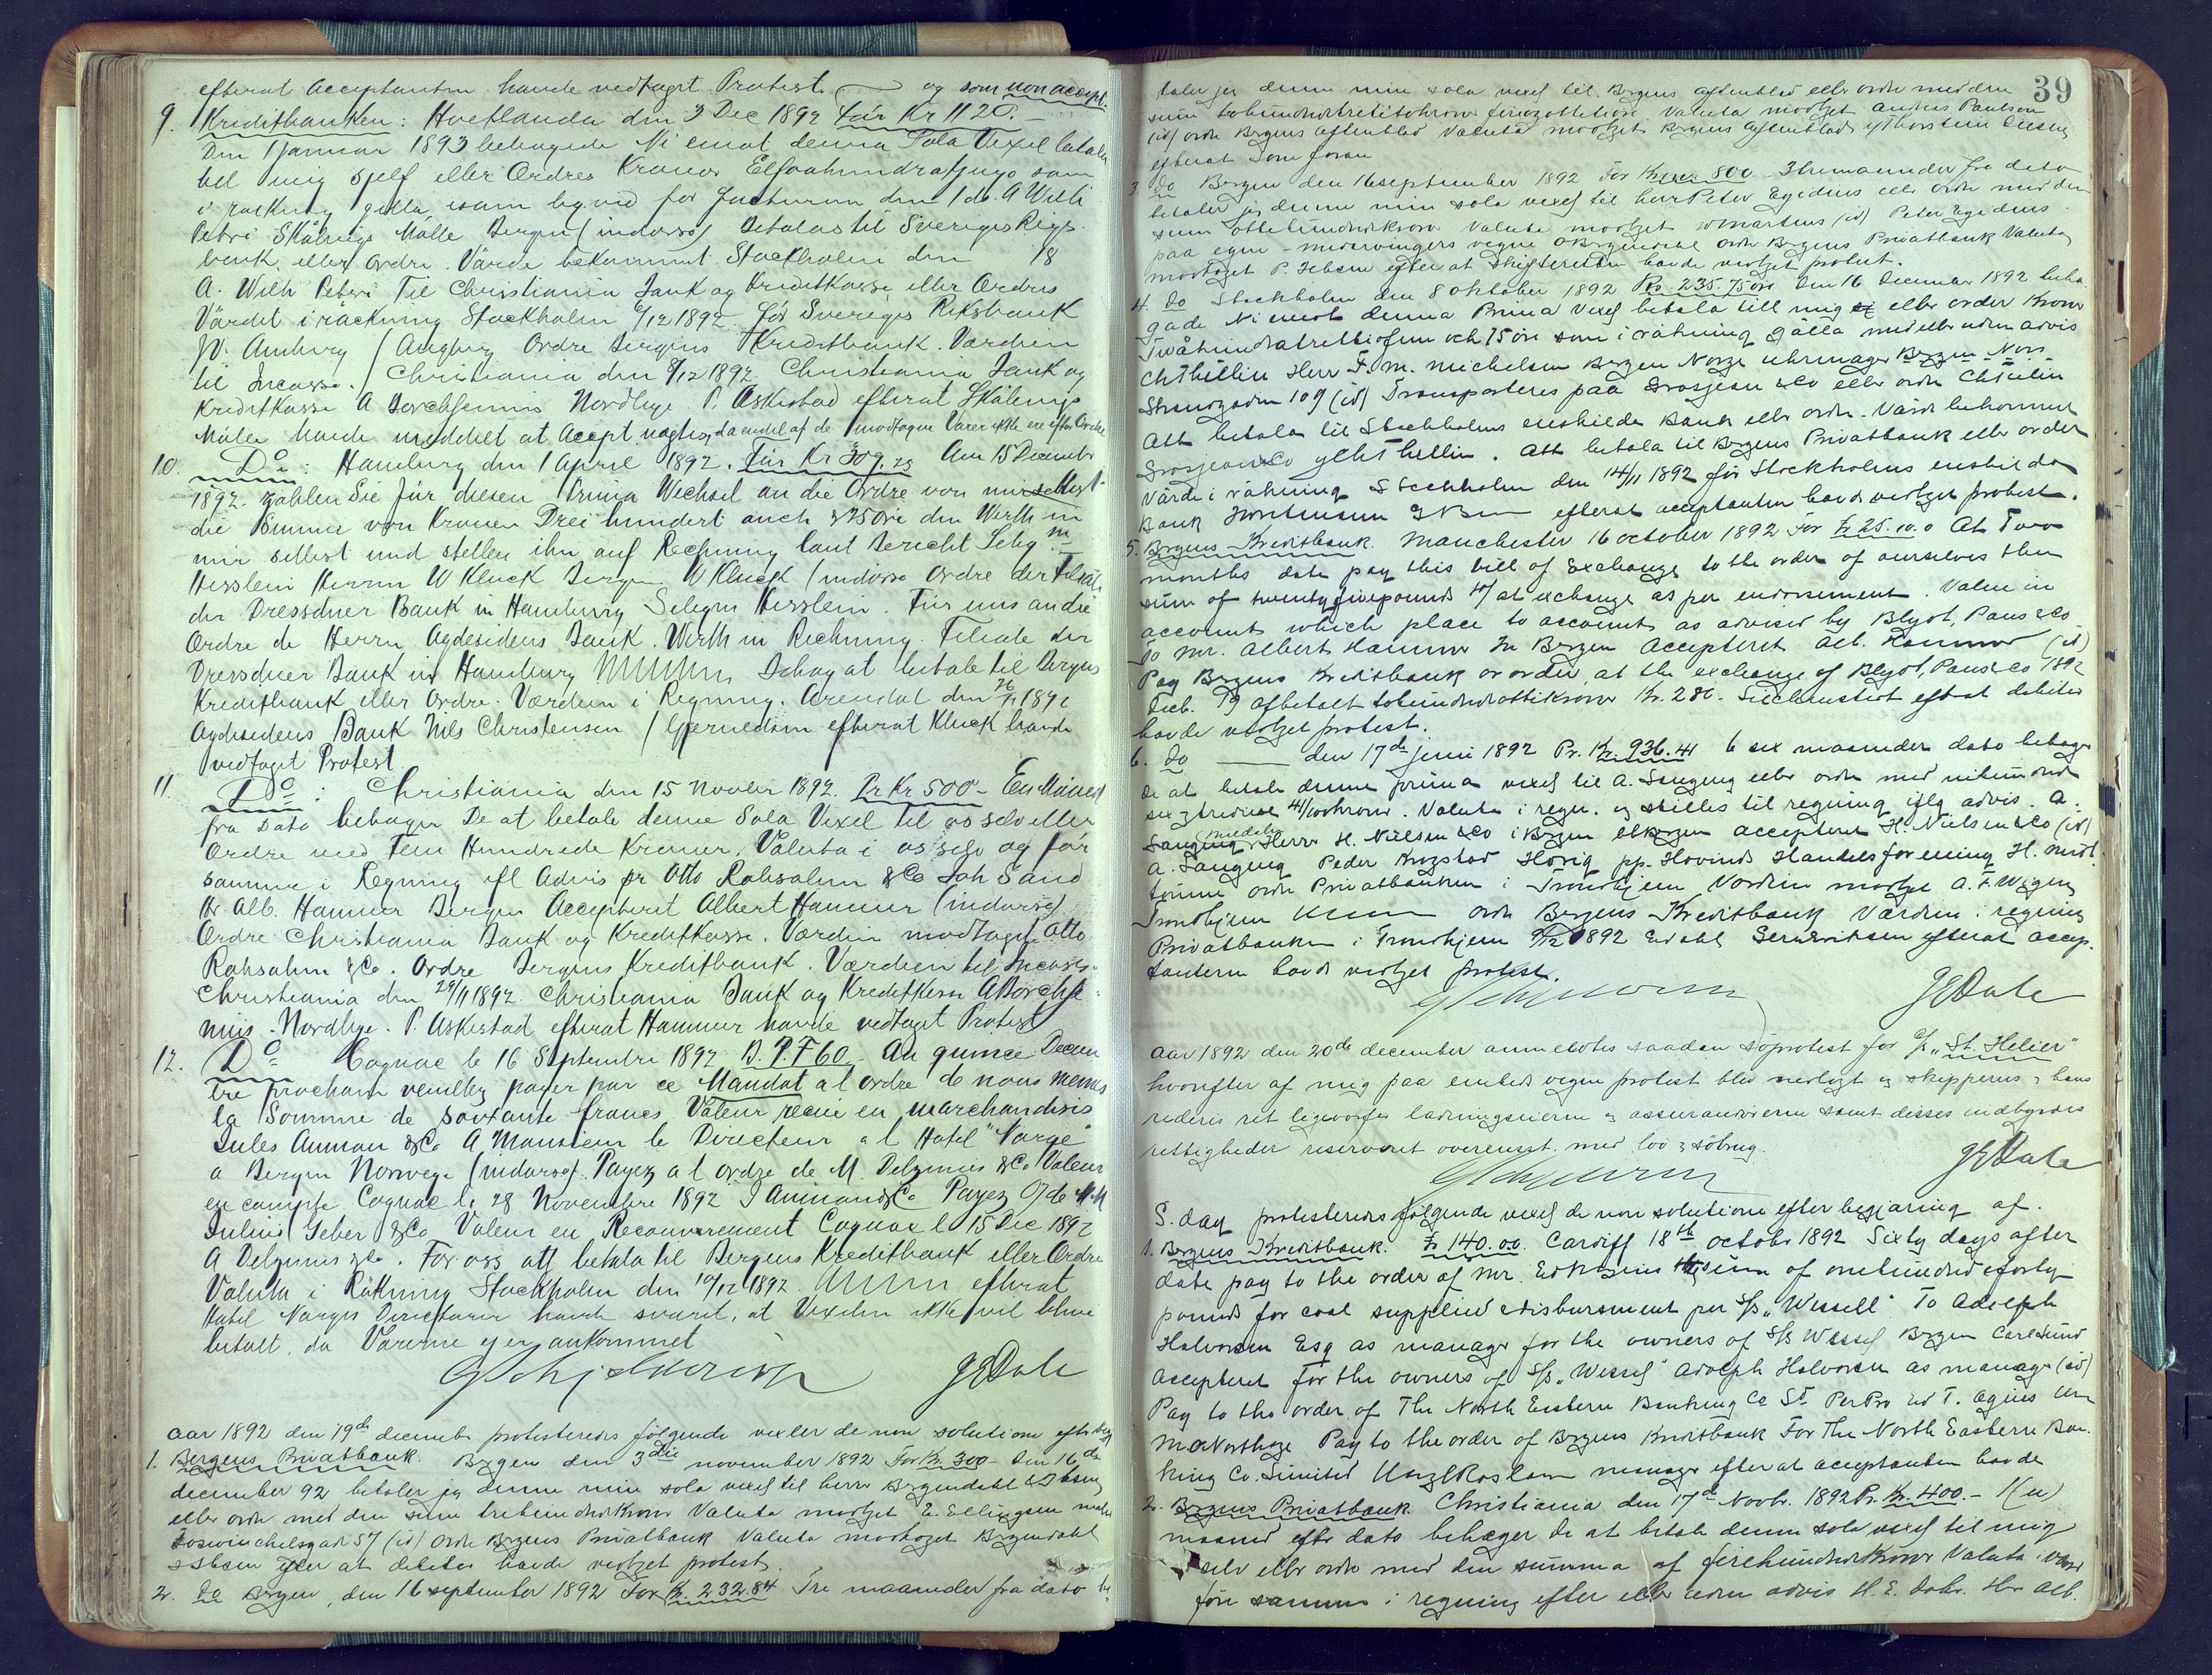 efterat Acceptanten havde vedtaget Protest. og som non accept.
9. Kreditbanken: Hvetlanda den 3 Dec 1892 För Kr 1120.–
Den 1 Januar 1893 behagade Ni emot denna Sola Vexel betala
til mig sjelf eller Ordres Kronor Elfvahundratjugo som
i räkning gälla som lig. vid för Facturan den 1 ds. A Wilh
Petri Skålevigs Mölle Bergen (indorso) Betalas til Sveriges Rigs-
bank eller Ordre. Värde bekommet Stockholm den 18
A. Wilh Petri Til Christiania Bank og Kreditkasse eller Ordres
Värdet i räckning Stockholm 6/12 1892 för Sveriges Riksbank
W. Amberg / Ordre Bergens Kreditbank. Værdien
til Incasso. / Christiania den 8/12 1892. Christiania Bank og
Kreditkasse A Borchsenius Nordbye. P. Askestad efterat Skålevigs
Mölle havde meddelt at Accept nægtes, da endel af de modtagne Varer ikke ere efter Ordre
10. Do: Hamburg den 1 April 1892. Für Kr 309.25 Am 15 Decembr
1892 zahlen Sie für diesen Prima Wechsel an die Ordre von mir selbst
die Summe von Kronen Drei hundert auch 9 25 øre den Werth in
mir selbst und stellen ihn auf Rechnung laut Bericht Selig m
Hesslein Herrn W Kluck Bergen W Kluck (indorso Ordre der Filiale
der Dressdner Bank in Hamburg Seligm Hesslein. Für uns an die
Ordre de Herrn Agdesidens Bank. Werth in Rechnung. Filiale der
Dressdner Bank in Hamburg Behag at betale til Bergens
Kreditbank eller Ordre. Værdien i Regning. Arendal den 1892
Agdesidens Bank Nils Christensen / efterat Kluck havde
vedtaget Protest.
11. Do: Christiania den 15 Novbr 1892. Pr Kr 500– En Maaned
fra Dato behager De at betale denne Sola Vexel til os selv eller
Ordre med Fem Hundrede Kroner. Valuta i os selv og för
samme i Regning ifl Advis pr Otto Rohsahm & Co Joh Sand
Hr Alb. Hammer Bergen Accepteret Albert Hammer (indorso)
Ordre Christiania Bank og Kreditkasse. Værdien modtaget Otto
Rohsahm & Co. Ordre Bergens Kreditbank. Værdien til Incasso.
Christiania den 29/11 1892. Christiania Bank og Kreditkasse A Borchse-
nius. Nordbye. P. Askestad efterat Hammer havde vedtaget Protest
12. Do Cognac le 16 Septembre 1892 B. P. F 60.– Au quinze Decem
bre prochain veuillez payer par ce Mandat a l ordre de nous memes
la Somme de soixante francs Valeur recue en marchandises
Jules Amman & Co A Monsieur le Directeur a l Hotel "Norge"
a Bergen Norwege (indorso). Payez a l ordre de M. Delzenius & Co Valeur
en compte Cognac le 28 Novembre 1892 J Amman & Co Payez O/ de M M
Julius Geber & Co Valeur en Recouvrement Cognac le 15 Dec 1892
A Delzenius & Co. For oss att betala til Bergens Kreditbank eller Ordre
Valuta i Räkning Stockholm den 10/12 1892. efterat
Hotel Norges Directeur havde svaret, at Vexelen ikke vil blive
betalt, da Varerne ej er ankommet
JEDale
Aar 1892 den 19de december protesteredes følgende vexler de non solutione efter beg
1. Bergens Privatbank. Bergen den 3die november 1892 For Kr. 300– Den 16de
december 92 betaler jeg denne min sola vexel til herrer Bergendahl &
eller ordre med den sum trehundrekroner Valuta modtget E. Ellingsen
57 (id) Ordre Bergens Privatbank Valuta modtaget Bergendahl
efter at debitor havde vedtget protest.
2. Do Bergen, den 16 september 1892 For Kr. 232.84 Tre maaneder fra dato be-
39
taler jeg denne min sola vexel til Bergens aftenblad eller ordre med den
sum tohundredetretitokroner firogottiøre Valuta modtget Anders Paulsen
(id) ordre Bergens aftenblad Valuta modtget Bergens aftenblad
efterat Som foran
3. Do Bergen den 16 september 1892 For Kroner 800 3 tremaaneder fra dato
betaler jeg denne min sola vexel til herr Peter Egidius eller ordre med den
sum ottehundredekroner Valuta modtget (id) Peter Egidius
paa egne – vegne ordre Bergens Privatbank Valuta
modtaget efter at skifteretten havde vedtget protest.
4. Do Stockholm den 8 Oktober 1892 Kr. 235.75 öre Den 16 December 1892 beha
gade Ni emot denna Prima Vexel betala till mig eller order Kronor
Tvåhundratrettiofem och 75 öre som i räkning gälla med eller uden advis
Ch Thellin Herr F. M. Michelsen Bergen Norge Uhrmager Bergen Norr
Strandgaden 109 (id) Transporteres paa Grosjean & Co eller ordre Ch Thellin
Att betala til Stockholms enskilda Bank eller ordre. Värde bekommet
Grosjean & Co Ch Thellin. Att betala til Bergens Privatbank eller order
Värde i räkning Stockholm den 14/11 1892 för Stockholms enskilda
Bank efterat acceptanten havde vedtget protest.
5. Bergens Kreditbank. Manchester 16 october 1892 For £ 25.10.0 At Two
months date pay this bill of Exchange to the order of ourselves the
sum of twentyfivepounds at exchange as per endorsement. Value in
account which place to account as advised by Blyot, Paus & Co
To Mr. Albert Hammer In Bergen Accepteret Alb. Hammer (id)
Pay Bergens Kreditbank or order at the exchange of Blyot, Paus & Co 1892
Decb. 19 afbetalt tohundredottikroner Kr. 280. efterat debitor
havde vedtget protest.
6. Do den 17de juni 1892 Pr. Kr. 936.41 6 sex maaneder dato behager
De at betale denne prima vexel til A. Saugeng eller ordre med nihundred
sex&tredive 41/100 kroner. Valuta i regn. og stilles til regning iflg advis. A.
Saugeng Herrer H. Nielsen & Co i Bergen accepteret H. Nielsen & Co (id)
A. Saugeng Peder Krogstad Hovig pp. Hovinds Handelsforening H. Midt-
tømme ordre Privatbanken i Trondhjem Værdien modtget A. F. Wigen
Trondhjem ordre Bergens Kreditbank Værdien i regning
Privatbanken i Trondhjem 9/12 1892 efterat accep-
tanterne havde vedtget protest.
JEDale
Aar 1892 den 20de december anmeldtes saadan søprotest for S/S "St. Helier"
hvorefter af mig paa embeds vegne protest blev nedlagt og skipperens & hans
rederis ret ligeoverfor ladningseierne og assurandørerne samt disses indbyrdes
rettigheder reserveret overensst. med lov & søbrug.
JEDale
S. dag protesteredes følgende vexel de non solutione efter begjæring af.
1. Bergens Kreditbank. £ 140.0.0. Cardiff 18th octobr 1892 Sixty days after
date pay to the order of Mr. the sum of onehundred&forty
pounds for coal supplied & disbursment per S/S "Wessel" To Adolph
Halvorsen Esq as manager for the owners of S/S Wessel Bergen Carl Sund
Accepteret For the owners of S/S "Wessel" Adolph Halvorsen as manager (id)
Pay to the order of The North Eastern Banking Co Ld. Per Pro
Pay to the order of Bergens Kreditbank For The North Eastern Ban-
king Co. Limited manager efterat acceptanten havde
2. Bergens Privatbank Christiania den 17de Novbr. 1892 Pr. Kr. 400.– 1 (en)
maaned efter dato behager De at betale denne sola vexel til mig
selv eller ordre med den summa af firehundredekroner Valuta i
føre samme i regning efter eller uden advis H. E. Dahr. Hr Alb.